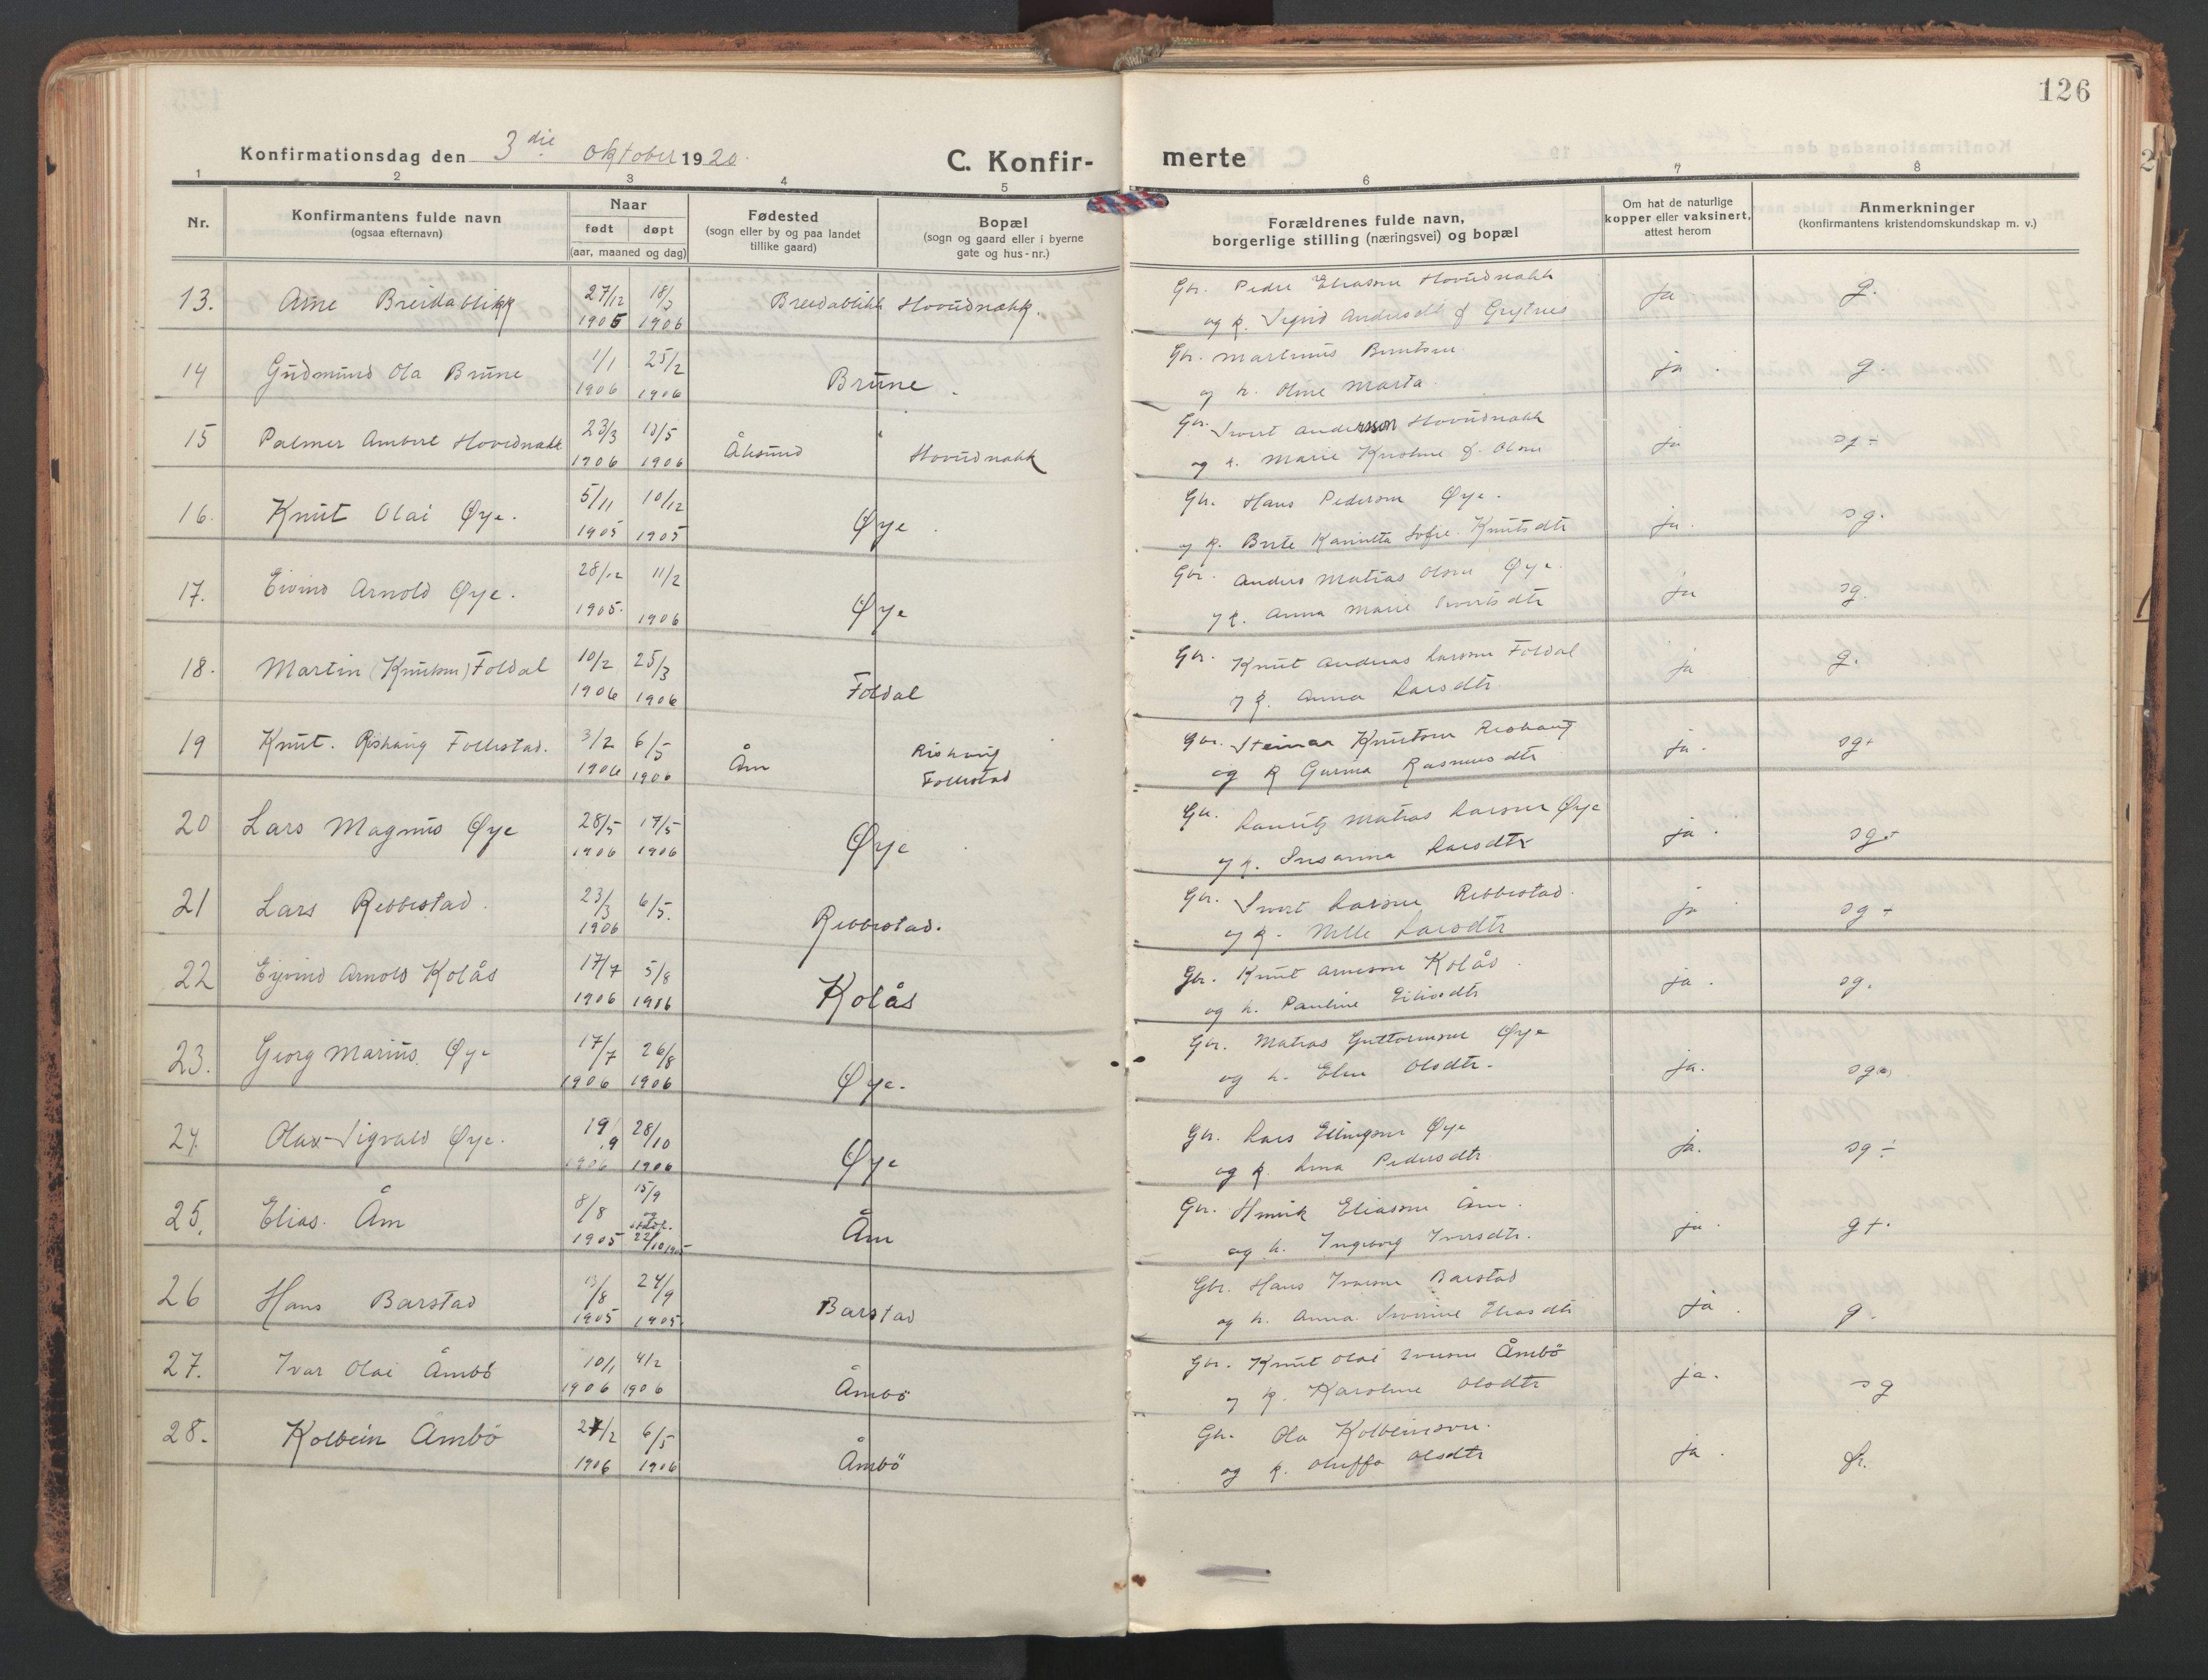 126
Konfirmationsdag den 3die oktober 1920.
C. Konfir-merte
1 2 3 4 5 6 7 8
Nr.
Konfirmantens fulde navn
(ogsaa efternavn)
Naar
født døpt
(aar, maaned og dag)
Fødested
(sogn eller by og paa landet
tillike gaard)
Bopæl
(sogn og gaard eller i byerne
gate og hus-nr.)
Forældrenes fulde navn,
borgerlige stilling (næringsvei) og bopæl
Om hat de naturlige
kopper eller vaksinert,
attest herom
Anmerkninger
(konfirmantens kristendomskundskap m. v.)
13. Arne Breidablikk 27/12 1905 18/3 1906 Breidablikk Hovudnakk. Gbr. Peder Eliassen Hovudnakk ja g.
og k. Sigrid Andersdt f Grytnes
14 Gudmund Ola Brune 1/1 1906 25/2 1906 Brune. Gbr. Martinus Berntsen ja. g.
og h. Oline Marta.
15 Palmer Hovudnakk 23/3 1906 13/5 1906 Ålesund Hovudnakk Gbr. Sivert Andersson Hovudnakk ja sg ÷
og k. Marie f. Olsen
16. Knut Olai Øye. 5/11 1905 10/12 1905 Øye. Gbr. Hans Pedersen Øye. ja. sg.
og k. Brite Sofie Knutsdtr
17. Eivind Arnold Øye. 28/12 1905. 11/2 1906 Øye Gbr. Anders Matias Olsen Øye. ja sg.
og k. Anna Marie Sivertsdtr
18. Martin (Knutsen) Foldal 10/2 1906 25/3 1906 Foldal Gbr. Knut Andreas Larsen Foldal ja g.
og k. Anna Larsdtr.
19 Knut. Rishaug Follestad. 3/2 1906 6/5 1906 Åm Rishaug Follestad Gbr. Steinar Knutsen Rishaug ja. sg+
og k Gurina Rasmusdtr
20 Lars Magnus Øye 28/5 1906 17/5 1906 Øye Gbr. Lauritz Matias Larsen Øye ja. sg+
og k. Susanna Larsdtr
21 Lars Rebbestad. 23/3 1906 6/5. Rebbestad. Gbr. Sivert Larsen Rebbestad. ja sg +
og k. Nelle Larsdtr
22 Eivind Arnold Kolås 17/7 1906 5/8 1906 Kolås Gbr. Knut Arnesen Kolås. ja. sg.
og h. Pauline
23. Georg Marius. Øye 17/7 1906 26/8 1906 Øye. Gbr. Matias Guttormsen Øye ja.
og h. Eline Olsdtr.
24. Olav Sigvald Øye. 19/9 1906 28/10 1906 Øye Gbr. Lars Ellingsen Øye ja. sg ÷
og k. Lina Pedersdtr
25. Elias. Åm 8/8 1905 15/9 og 22/10 1905 Åm Gbr. Henrik Eliassen Åm. ja. g +.
og h. Ingeborg Iversdtr.
26 Hans Barstad 13/8 1905 24/9 1905. Barstad Gbr. Hans Ivarsen Barstad ja. g.
og h. Anna Eliasdtr
27. Ivar Olai Åmbö 10/1 1906 4/2 1906 Åmbö Gbr. Knut Olai Iversen Åmbö ja. sg
og k. Karoline Olsdtr
28. Kolbein Åmbö 27/2 1906 6/5 1906 Åmbö Gbr. Ola Kolbeinsson. ja.
og k. Oluffa Olsdtr